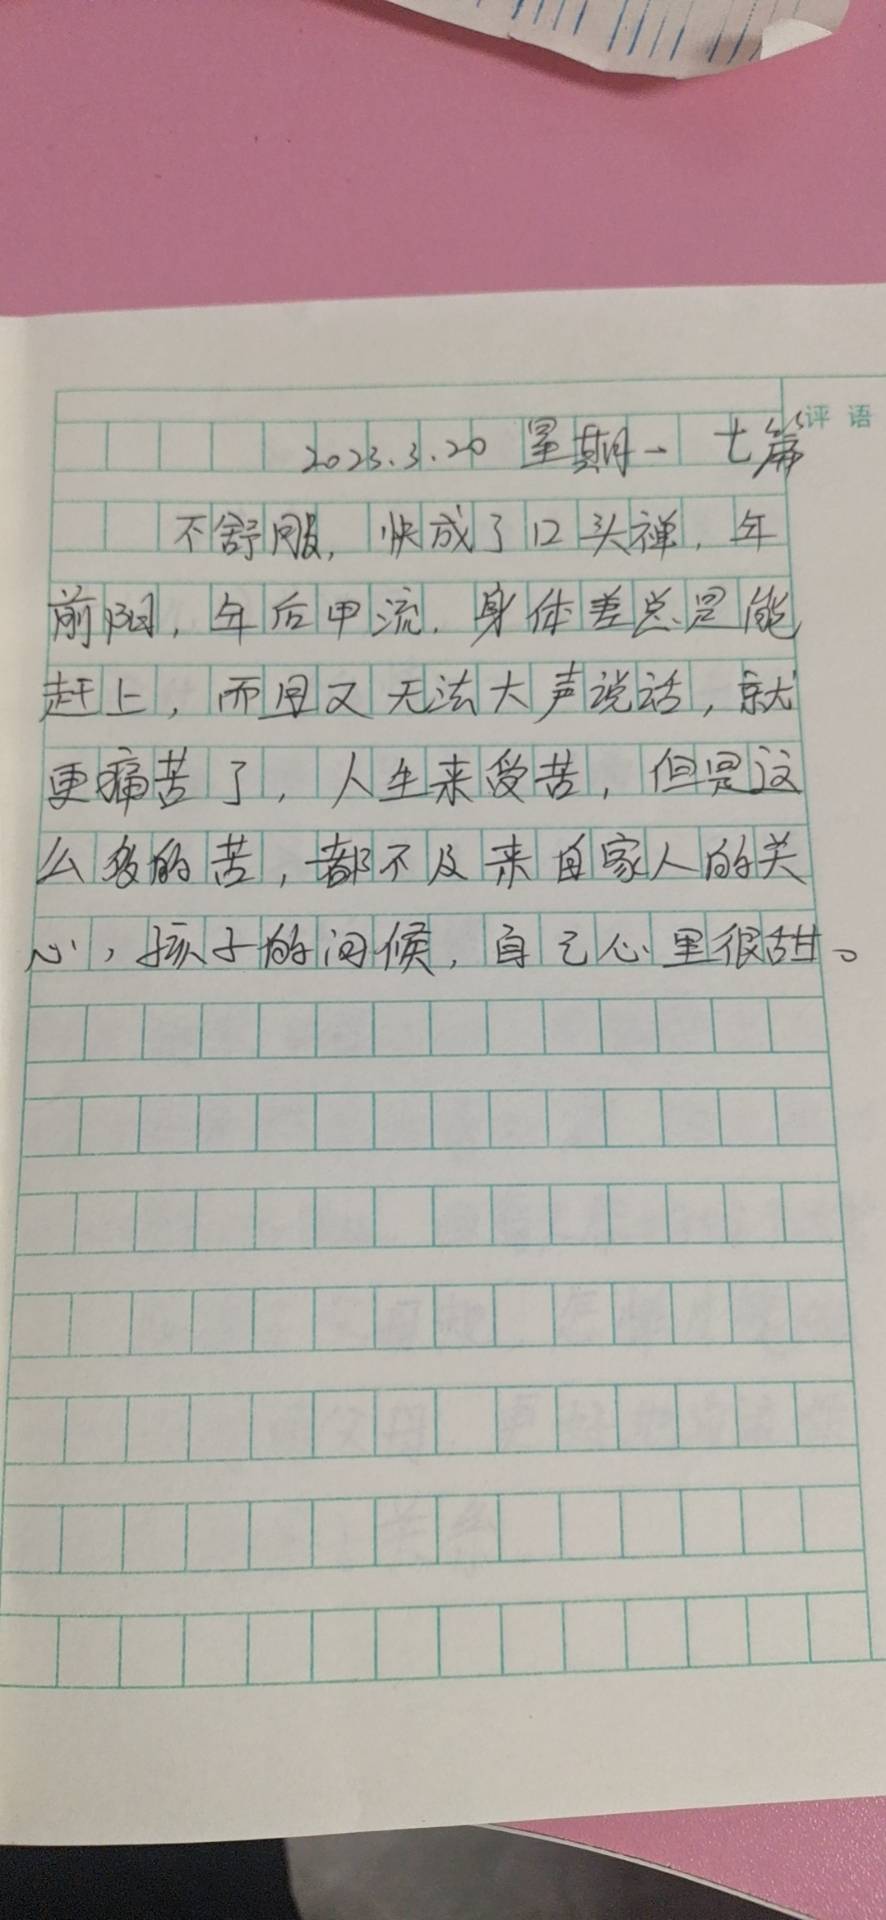 评语
2023.3.20 星期一 七篇
不舒服，快成了口头禅，年
前阳，年后甲流，身体差总是能
赶上，而且又无法大声说话，就
更痛苦了，人生来受苦，但是这
么多的苦，都不及来自家人的关
心，孩子的问候，自己心里很甜。